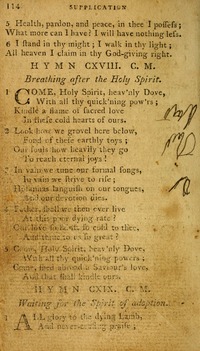 114 SUPPLICATION
5 Health, pardon, and peace, in thee I possess;
What more can I have? I will have nothing less.
6 I stand in thy might; I walk in thy light;
All heaven I claim in thy God-giving right.
HYMN CXVIII. C. M.
Breathing after the Holy Spirit.
1 COME, Holy Spirit, heav'nly Dove,
With all thy quick'ning pow'rs;
Kindle a flame of sacred love
In these cold hearts of ours.
2 Look how we grovel here below,
Fond of these earthly toys;
Our souls how heavily they go
To reach eternal joys!
3 In vain we tune our formal songs,
In vain we strive to rise;
Hosannas languish on our tongues,
And our devotion dies.
4 Father, shall we then ever live
At this poor dying rate?
Our love so faint, so cold to thee,
And thine to us so great?
5 Come, Holy Spirit, heav'nly Dove,
With all thy quick'ning powers;
Come, shed abroad a Saviour's love,
And that shall kindle ours.
HYMN CXIX. C. M.
Waiting for the Spirit of adoption.
1 ALL glory to the dying Lamb,
And never-ceasing praise;